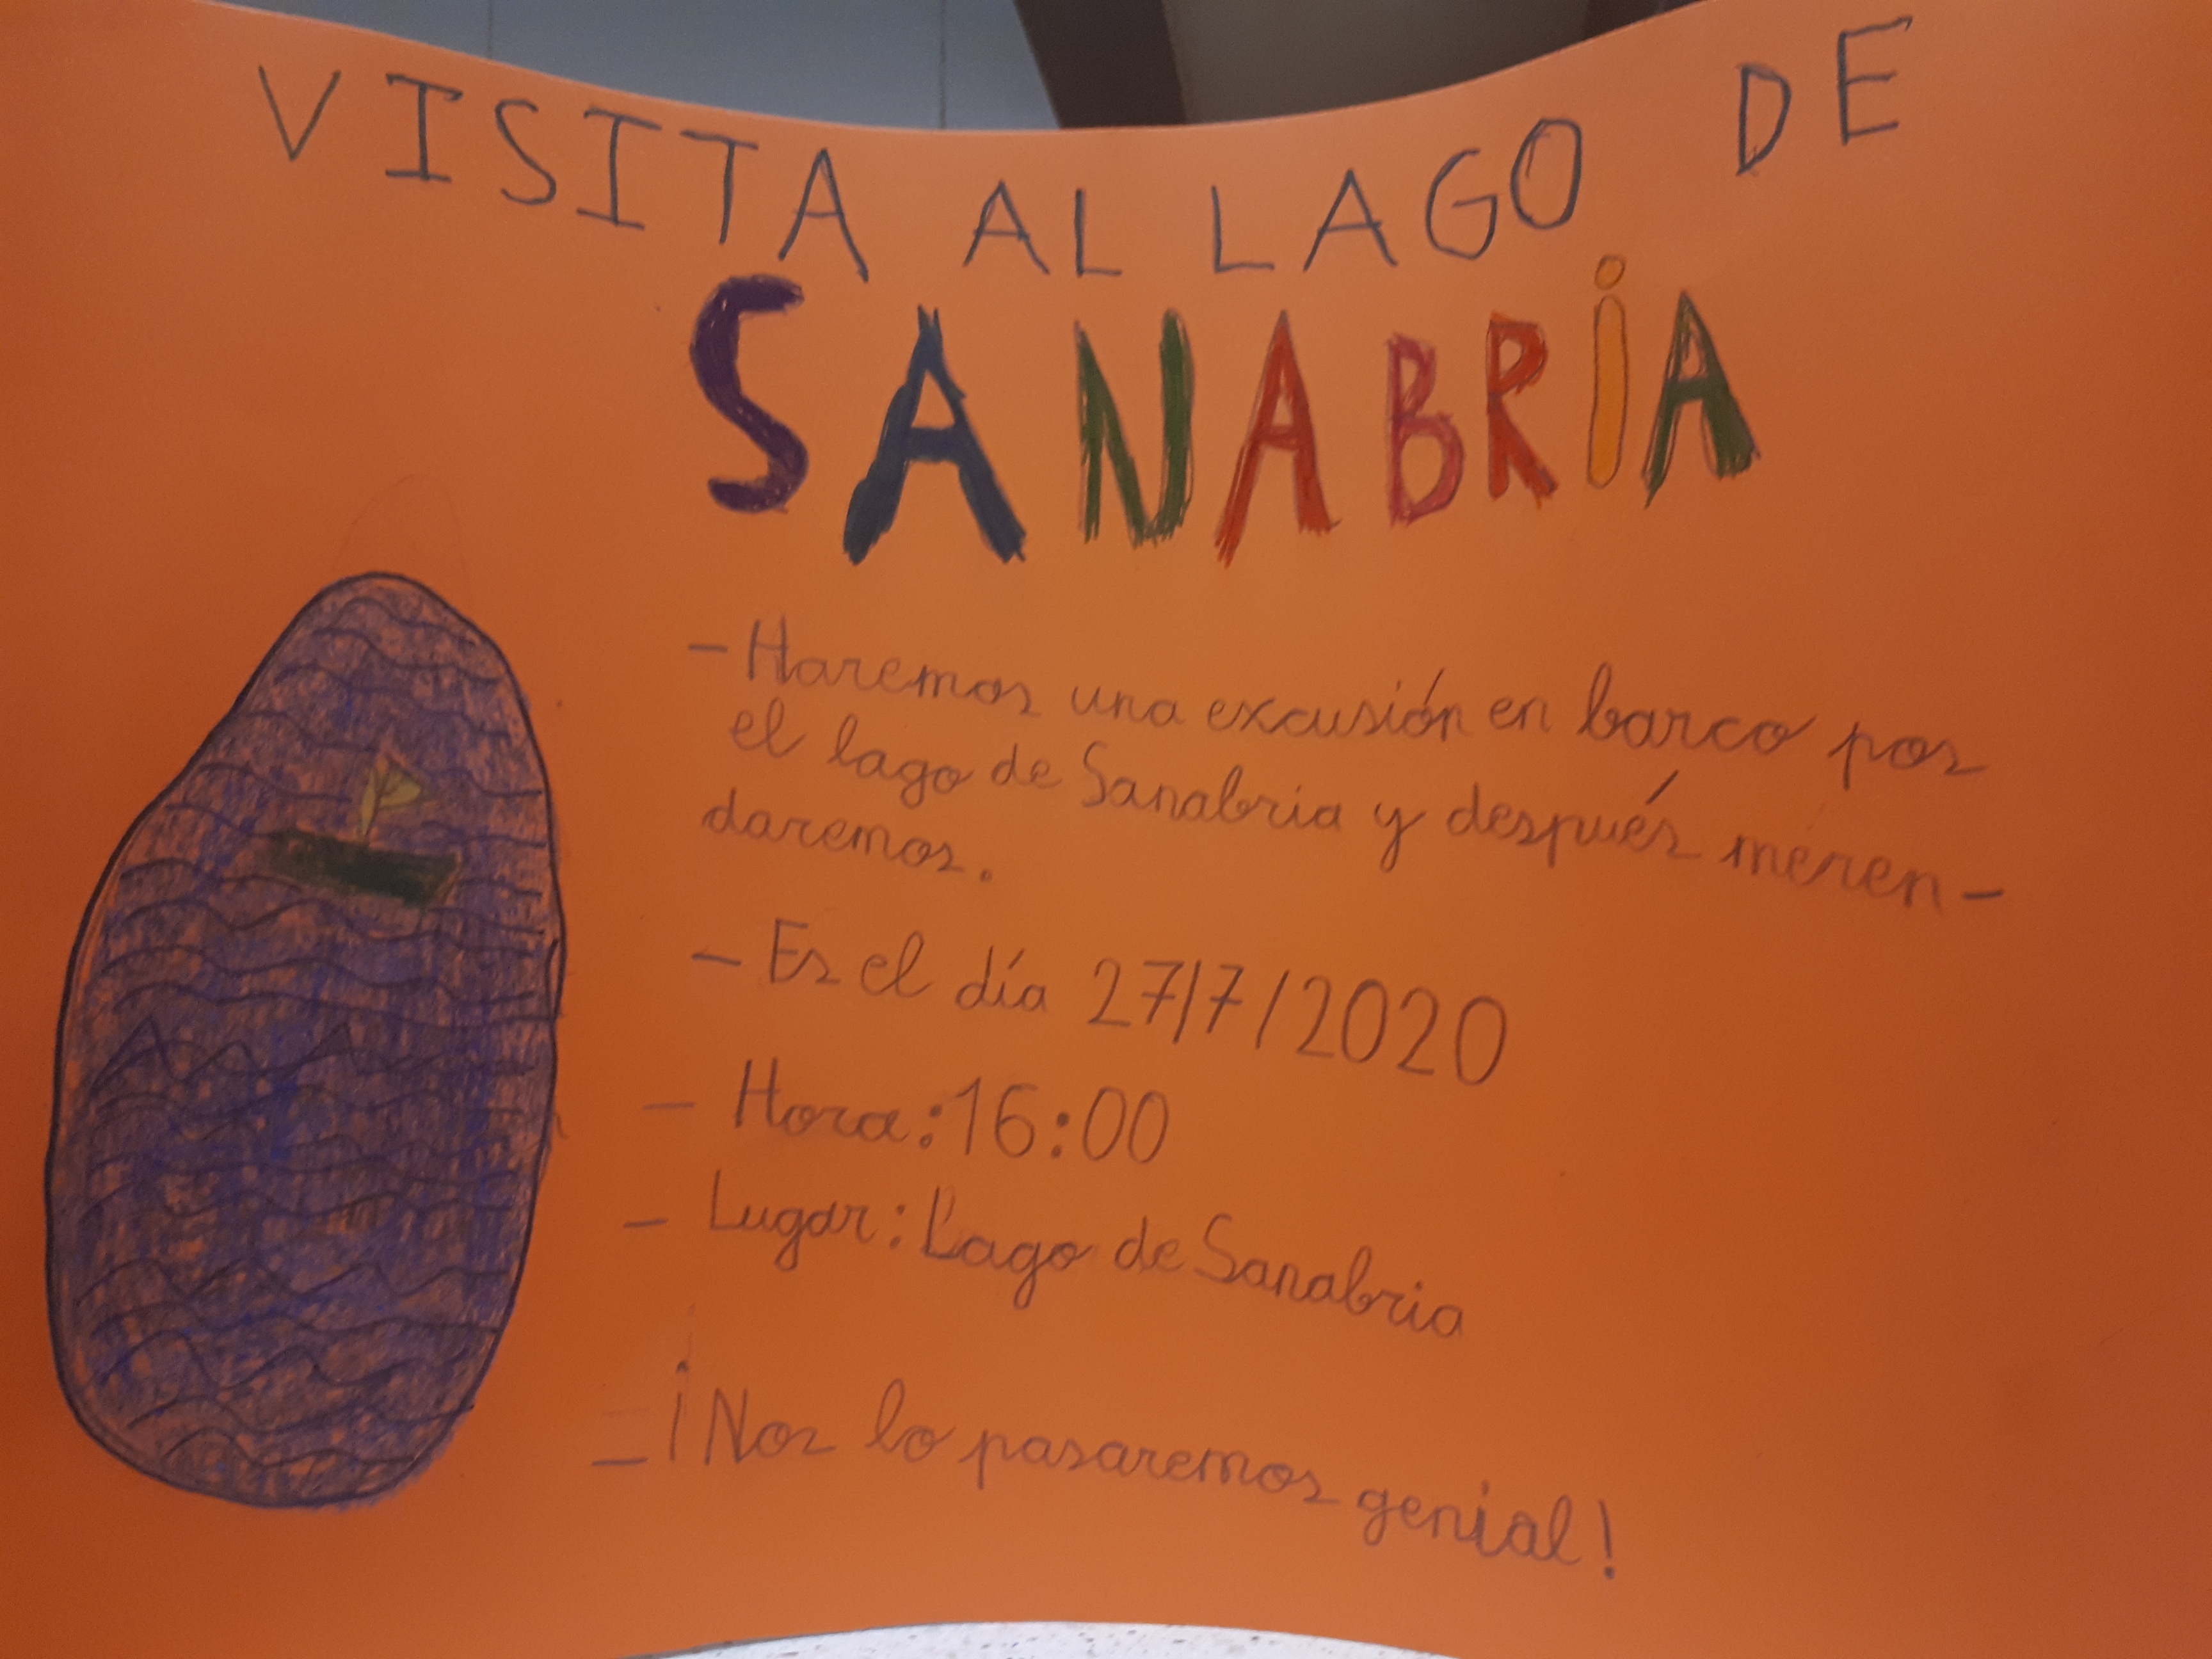 VISITA AL LAGO DE
SANABRiA
- Haremos una excusión en barco por
el lago de Sanabria y después meren-
daremos.
- Es el día 27/7/2020
- Hora: 16:00
- Lugar: Lago de Sanabria
- ¡Nos lo pasaremos genial!